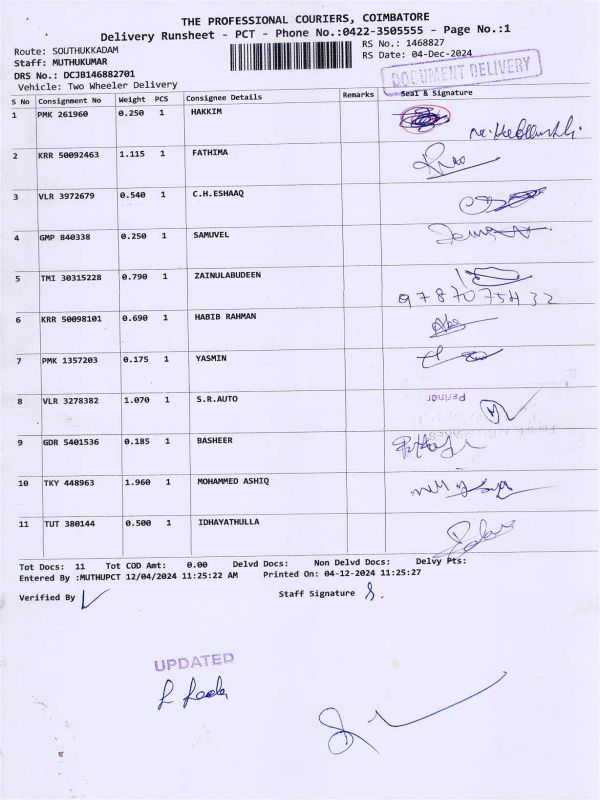 THE PROFESSIONAL COURIERS, COIMBATORE
Delivery Runsheet - PCT - Phone No.:0422-3505555 - Page No.:1
Route: SOUTHUKKADAM RS No.: 1468827
Staff: MUTHUKUMAR RS Date: 04-Dec-2024
DRS No.: DCJB146882701
DOCUMENT DELIVERY
Vehicle: Two Wheeler Delivery
S No Consignment No Weight PCS Consignee Details Remarks Seal & Signature
1 PMK 261960 0.250 1 HAKKIM
2 KRR 50092463 1.115 1 FATHIMA
3 VLR 3972679 0.540 1 C.H.ESHAAQ
4 GMP 840338 0.250 1 SAMUVEL
5 TMI 30315228 0.790 1 ZAINULABUDEEN
9787075432
6 KRR 50098101 0.690 1 HABIB RAHMAN
7 PMK 1357203 0.175 1 YASMIN
8 VLR 3278382 1.070 1 S.R.AUTO
Partner
9 GDR 5401536 0.185 1 BASHEER
10 TKY 448963 1.960 1 MOHAMMED ASHIQ
11 TUT 380144 0.500 1 IDHAYATHULLA
Tot Docs: 11 Tot COD Amt: 0.00 Delvd Docs: Non Delvd Docs: Delvy Pts:
Entered By :MUTHUPCT 12/04/2024 11:25:22 AM Printed On: 04-12-2024 11:25:27
Verified By Staff Signature
UPDATED